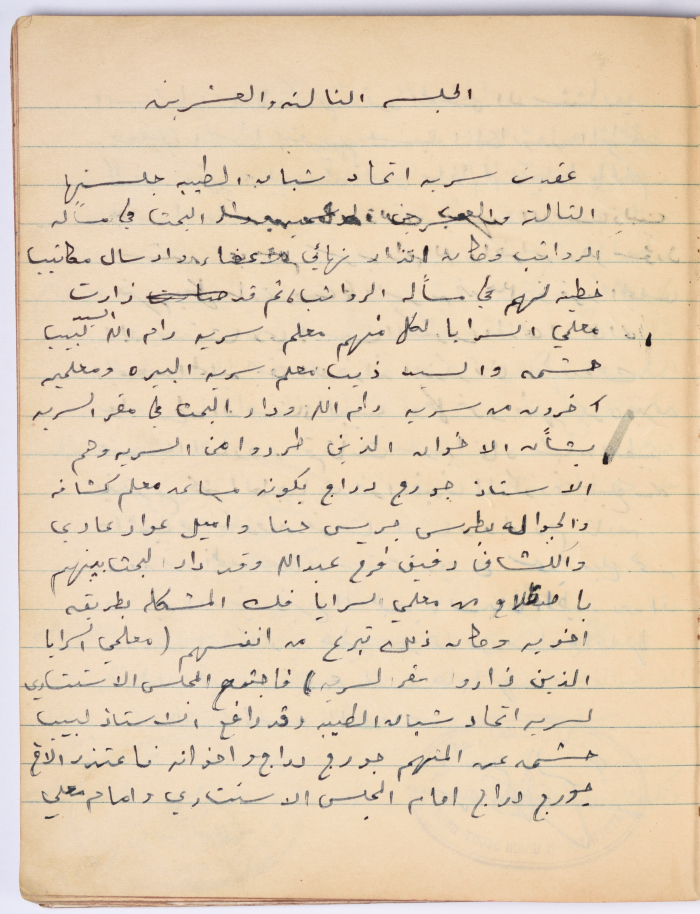 الجلسه الثالثه والعشرين
عقدت سريه اتحاد شبان الطيبه جلستها
الثالثة والعشرين البحث في مسأله
الرواتب وكان نهائي وارسال مكاتيب
خطيه لهم في مسأله الرواتب، ثم قد زارت
معلمي السرايا لكل منهم معلم سريه رام الله السيد لبيب
حشمه والسيد ذيب معلم سريه البيره ومعلميه
آخرون من سريه رام الله ودار البحث في مقر السريه
بشأن الاخوان الذين طردوا من السريه وهم
الاستاذ جورج دراج بكونه مساعد معلم كشافه
والجواله بطرس جريس حنا واميل عواد عمادي
والكشاف رفيق فرح عبدالله وقد دار البحث بينهم
من معلمي السرايا فك المشكله بطريقه
اخويه وكان ذلك تبرع من انفسهم (معلمي السرايا
الذين زاروا مقر السريه) فاجتمع المجلس الاستشاري
لسريه اتحاد شبان الطيبه وقد دافع الاستاذ لبيب
حشمه عن المتهم جورج دراج واخوانه فاعتذر الاخ
جورج دراج امام المجلس الاستشاري وامام معلمي